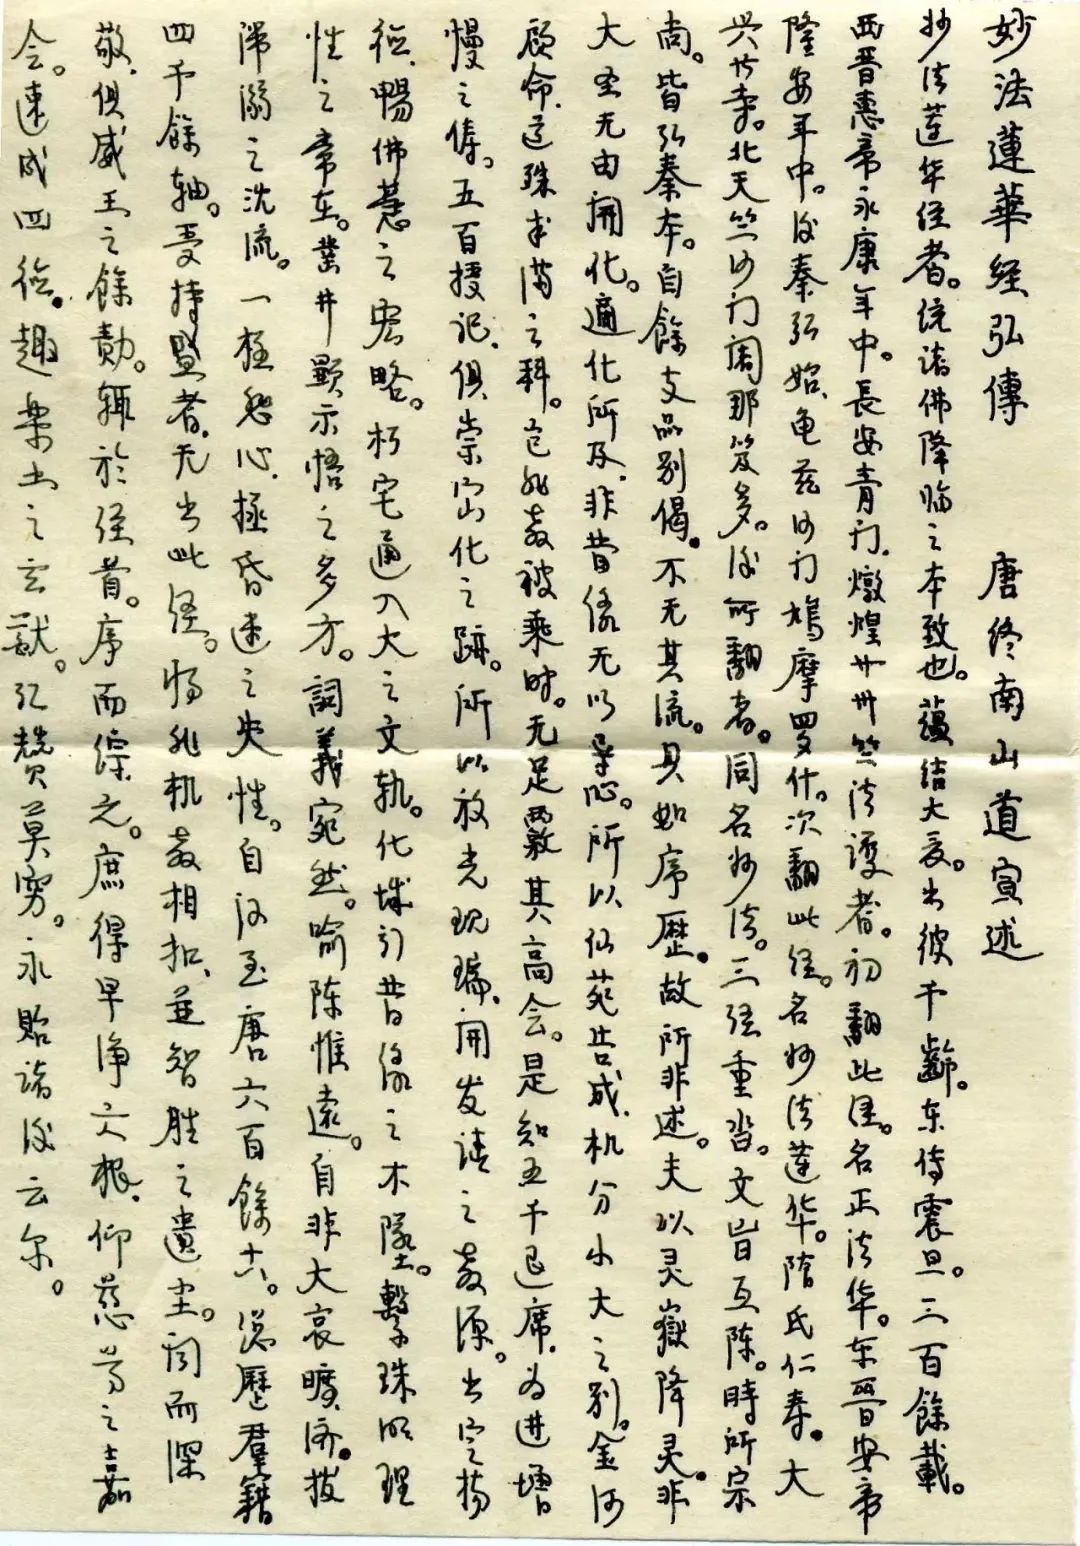 妙法蓮華经弘傳 唐终南山道宣述
妙法莲华经者。统诸佛降临之本致也。蕴结大夏。出彼千齡。东传震旦。三百餘載。
西晋惠帝永康年中。長安青门、燉煌卄卄竺法護者。初翻此经。名正法华。东晋安帝
隆安年中。後秦弘始、龟兹沙门鸠摩罗什。次翻此经。名妙法莲华。隋氏仁寿。大
兴善寺。北天竺沙门阇那笈多。後所翻者。同名妙法。三经重沓。文旨互陈。時所宗
尚。皆弘秦本。自餘支品别偈。不无其流。具如序歷。故所非述。夫以灵嶽降灵。非
大圣无由開化。適化所及、非昔缘无以导心。所以仙苑告成、机分小大之别。金河
顾命、道殊半满之科。岂非教被乘时。无足覈其高会。是知五千退席、为进增
慢之俦。五百授记、俱崇密化之跡。所以放光现瑞、開发请之教源。出定扬
德、暢佛慧之宏略。朽宅通入大之文轨。化城引昔缘之不墜。繫珠明理
性之常在。凿井顯示悟之多方。詞義宛然。喻陈惟遠。自非大哀曠济。拔
滞溺之沉流。一极悲心、拯昏迷之失性。自汉至唐六百餘六。总歷群籍
四千餘轴。受持盛者、无出此经。将非机教相扣、並智胜之遺尘。闻而深
敬、俱威王之餘勣。辄於经首。序而综之。庶得早净六根、仰慈尊之嘉
会。速成四德。趣樂土之玄猷。弘赞莫穷。永貽诸後云尔。